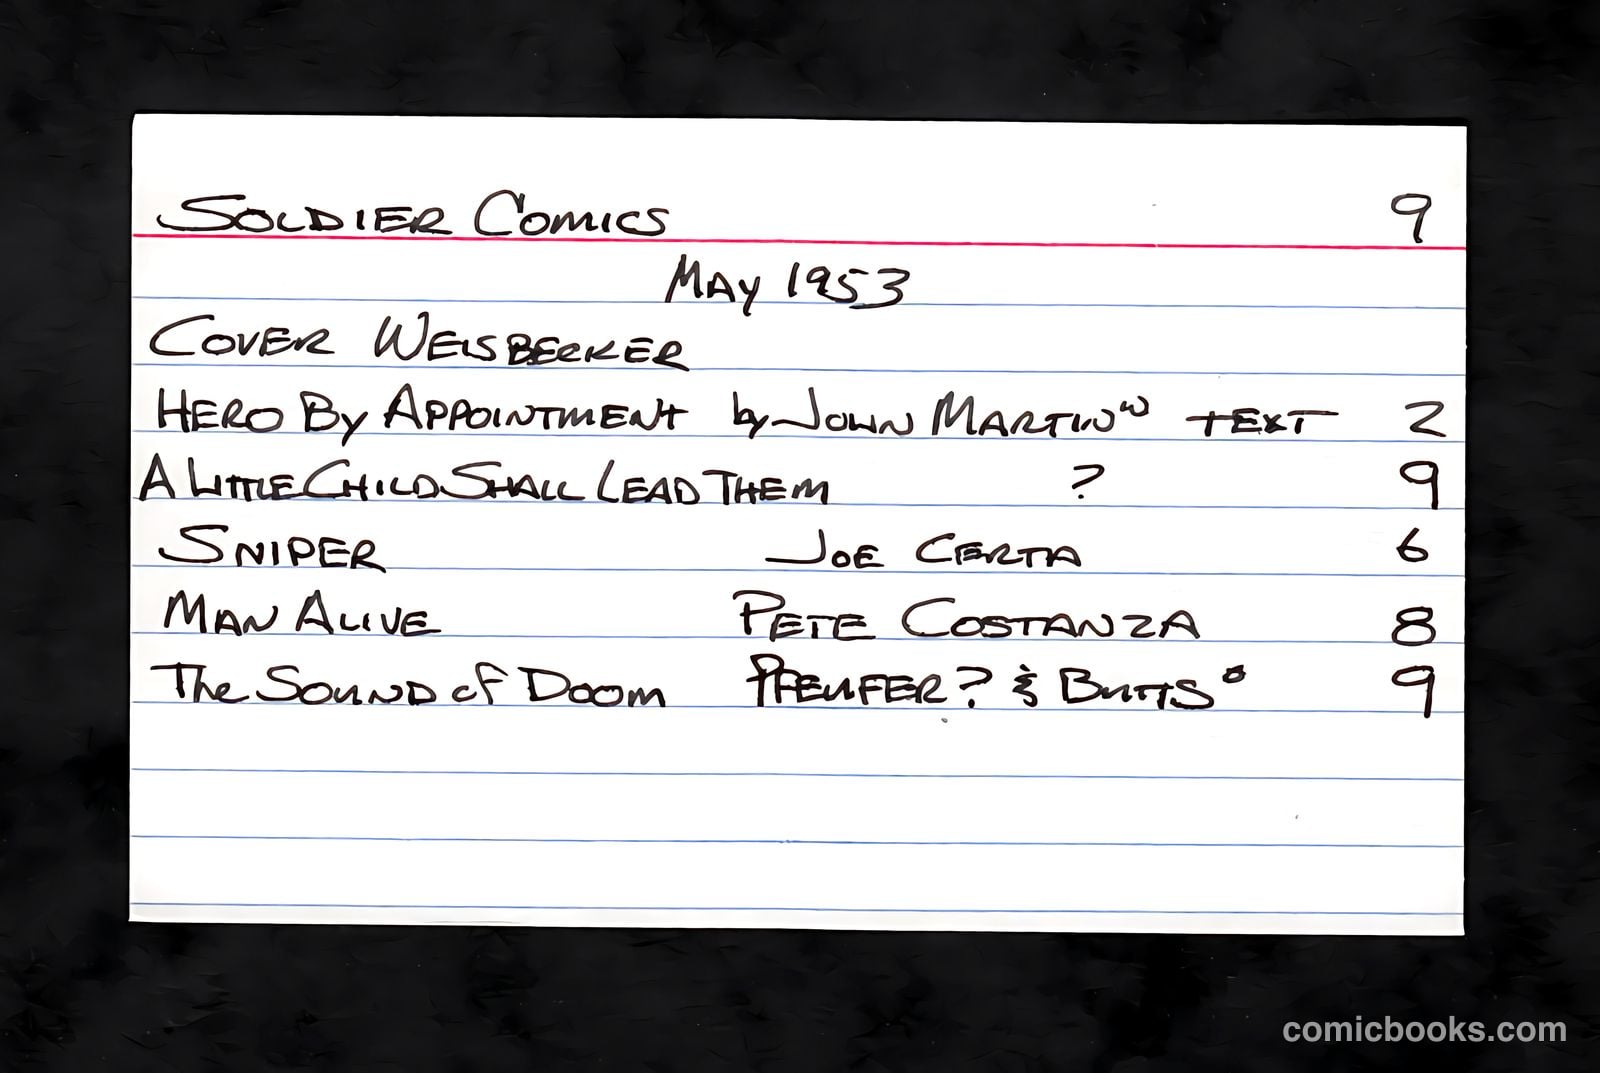 SOLDIER COMICS 9
MAY 1953
COVER WEISBECKER
HERO BY APPOINTMENT by JOHN MARTIN w TEXT 2
A LITTLE CHILD SHALL LEAD THEM ? 9
SNIPER JOE CERTA 6
MAN ALIVE PETE COSTANZA 8
The SOUND of DOOM PFEUFER? & BUTTS 9
comicbooks.com